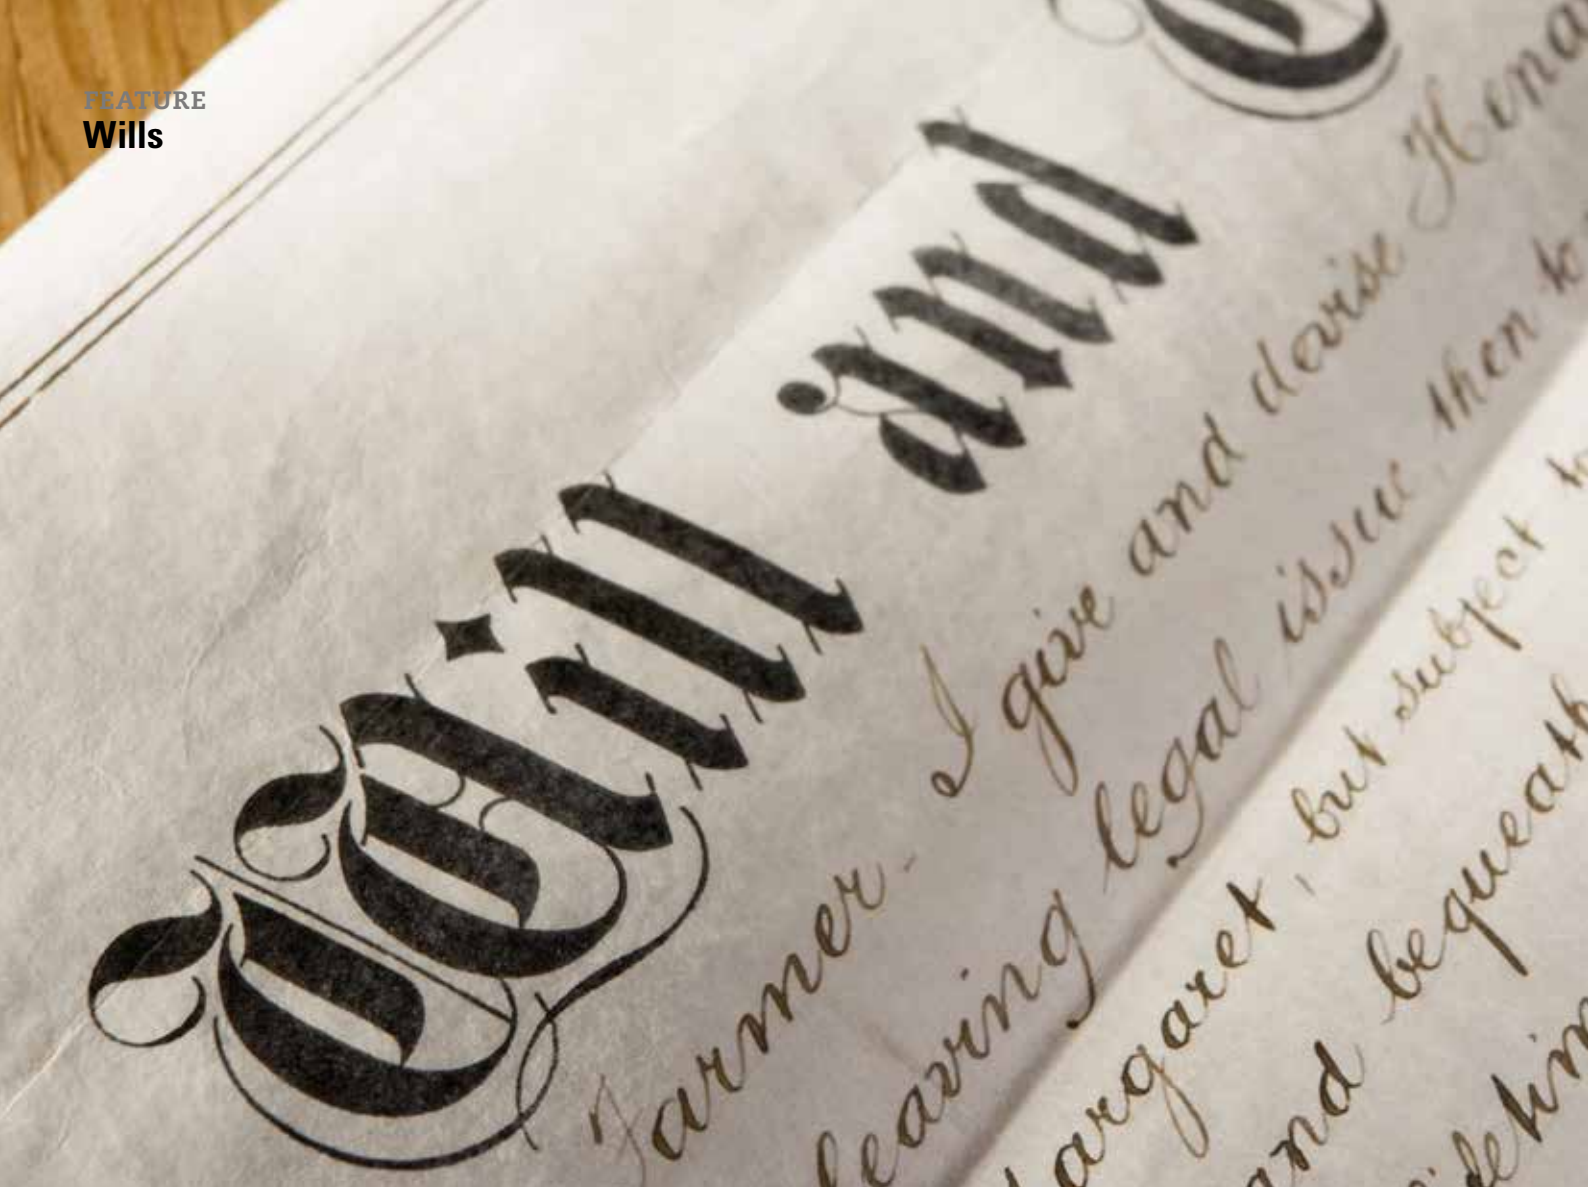 FEATURE
Wills
Will and
Farmer. I give and devise
leaving legal issue then to
argaret, but subject to
and bequeath